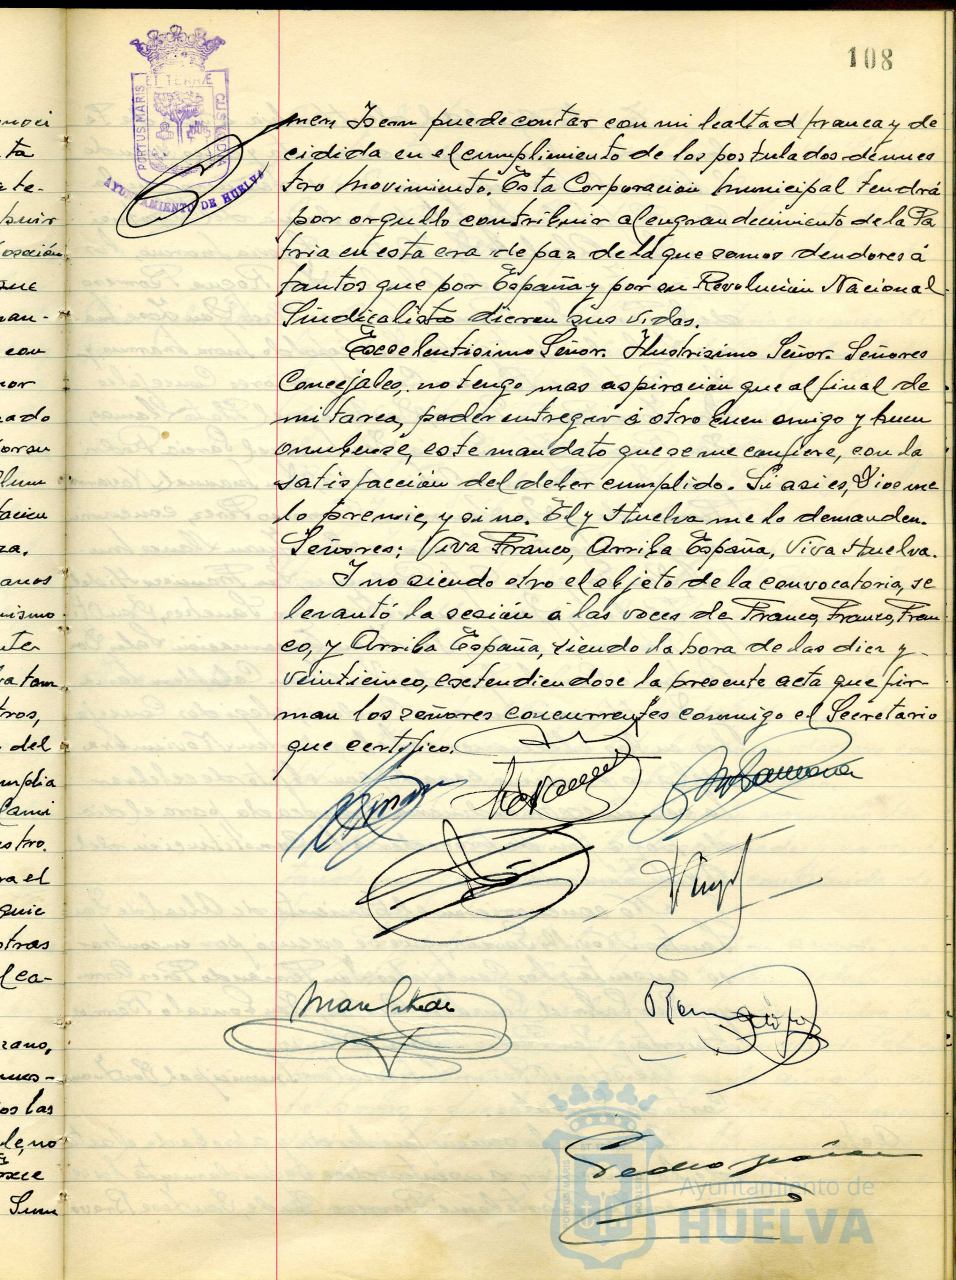 108
PORTUS MARIS ET TERRÆ CUSTODIA
AYUNTAMIENTO DE HUELVA
puede contar con mi lealtad franca y de
cidida en el cumplimiento de los postulados de nues
tro movimiento. Esta Corporación municipal tendrá
por orgullo contribuir al engrandecimiento de la Pa
tria en esta era de paz de la que somos deudores á
tantos que por España y por su Revolución Nacional
Sindicalista dieron sus vidas.
Excelentisimo Señor. Ilustrisimo Señor. Señores
Concejales, no tengo mas aspiración que al final de
mi tarea, poder entregar á otro buen amigo y buen
onubense, este mandato que se me confiere, con la
satisfacción del deber cumplido. Si asi es, Dios me
lo premie, y si no. El y Huelva me lo demanden.
Señores: Viva Franco, Arriba España, Viva Huelva.
Y no siendo otro el objeto de la convocatoria, se
levantó la sesión á las voces de Franco, Franco, Fran
co, y Arriba España, siendo la hora de las diez y
veinticinco, extendiendose la presente acta que fir
man los señores concurrentes conmigo el Secretario
que certifico.
Ayuntamiento de
HUELVA